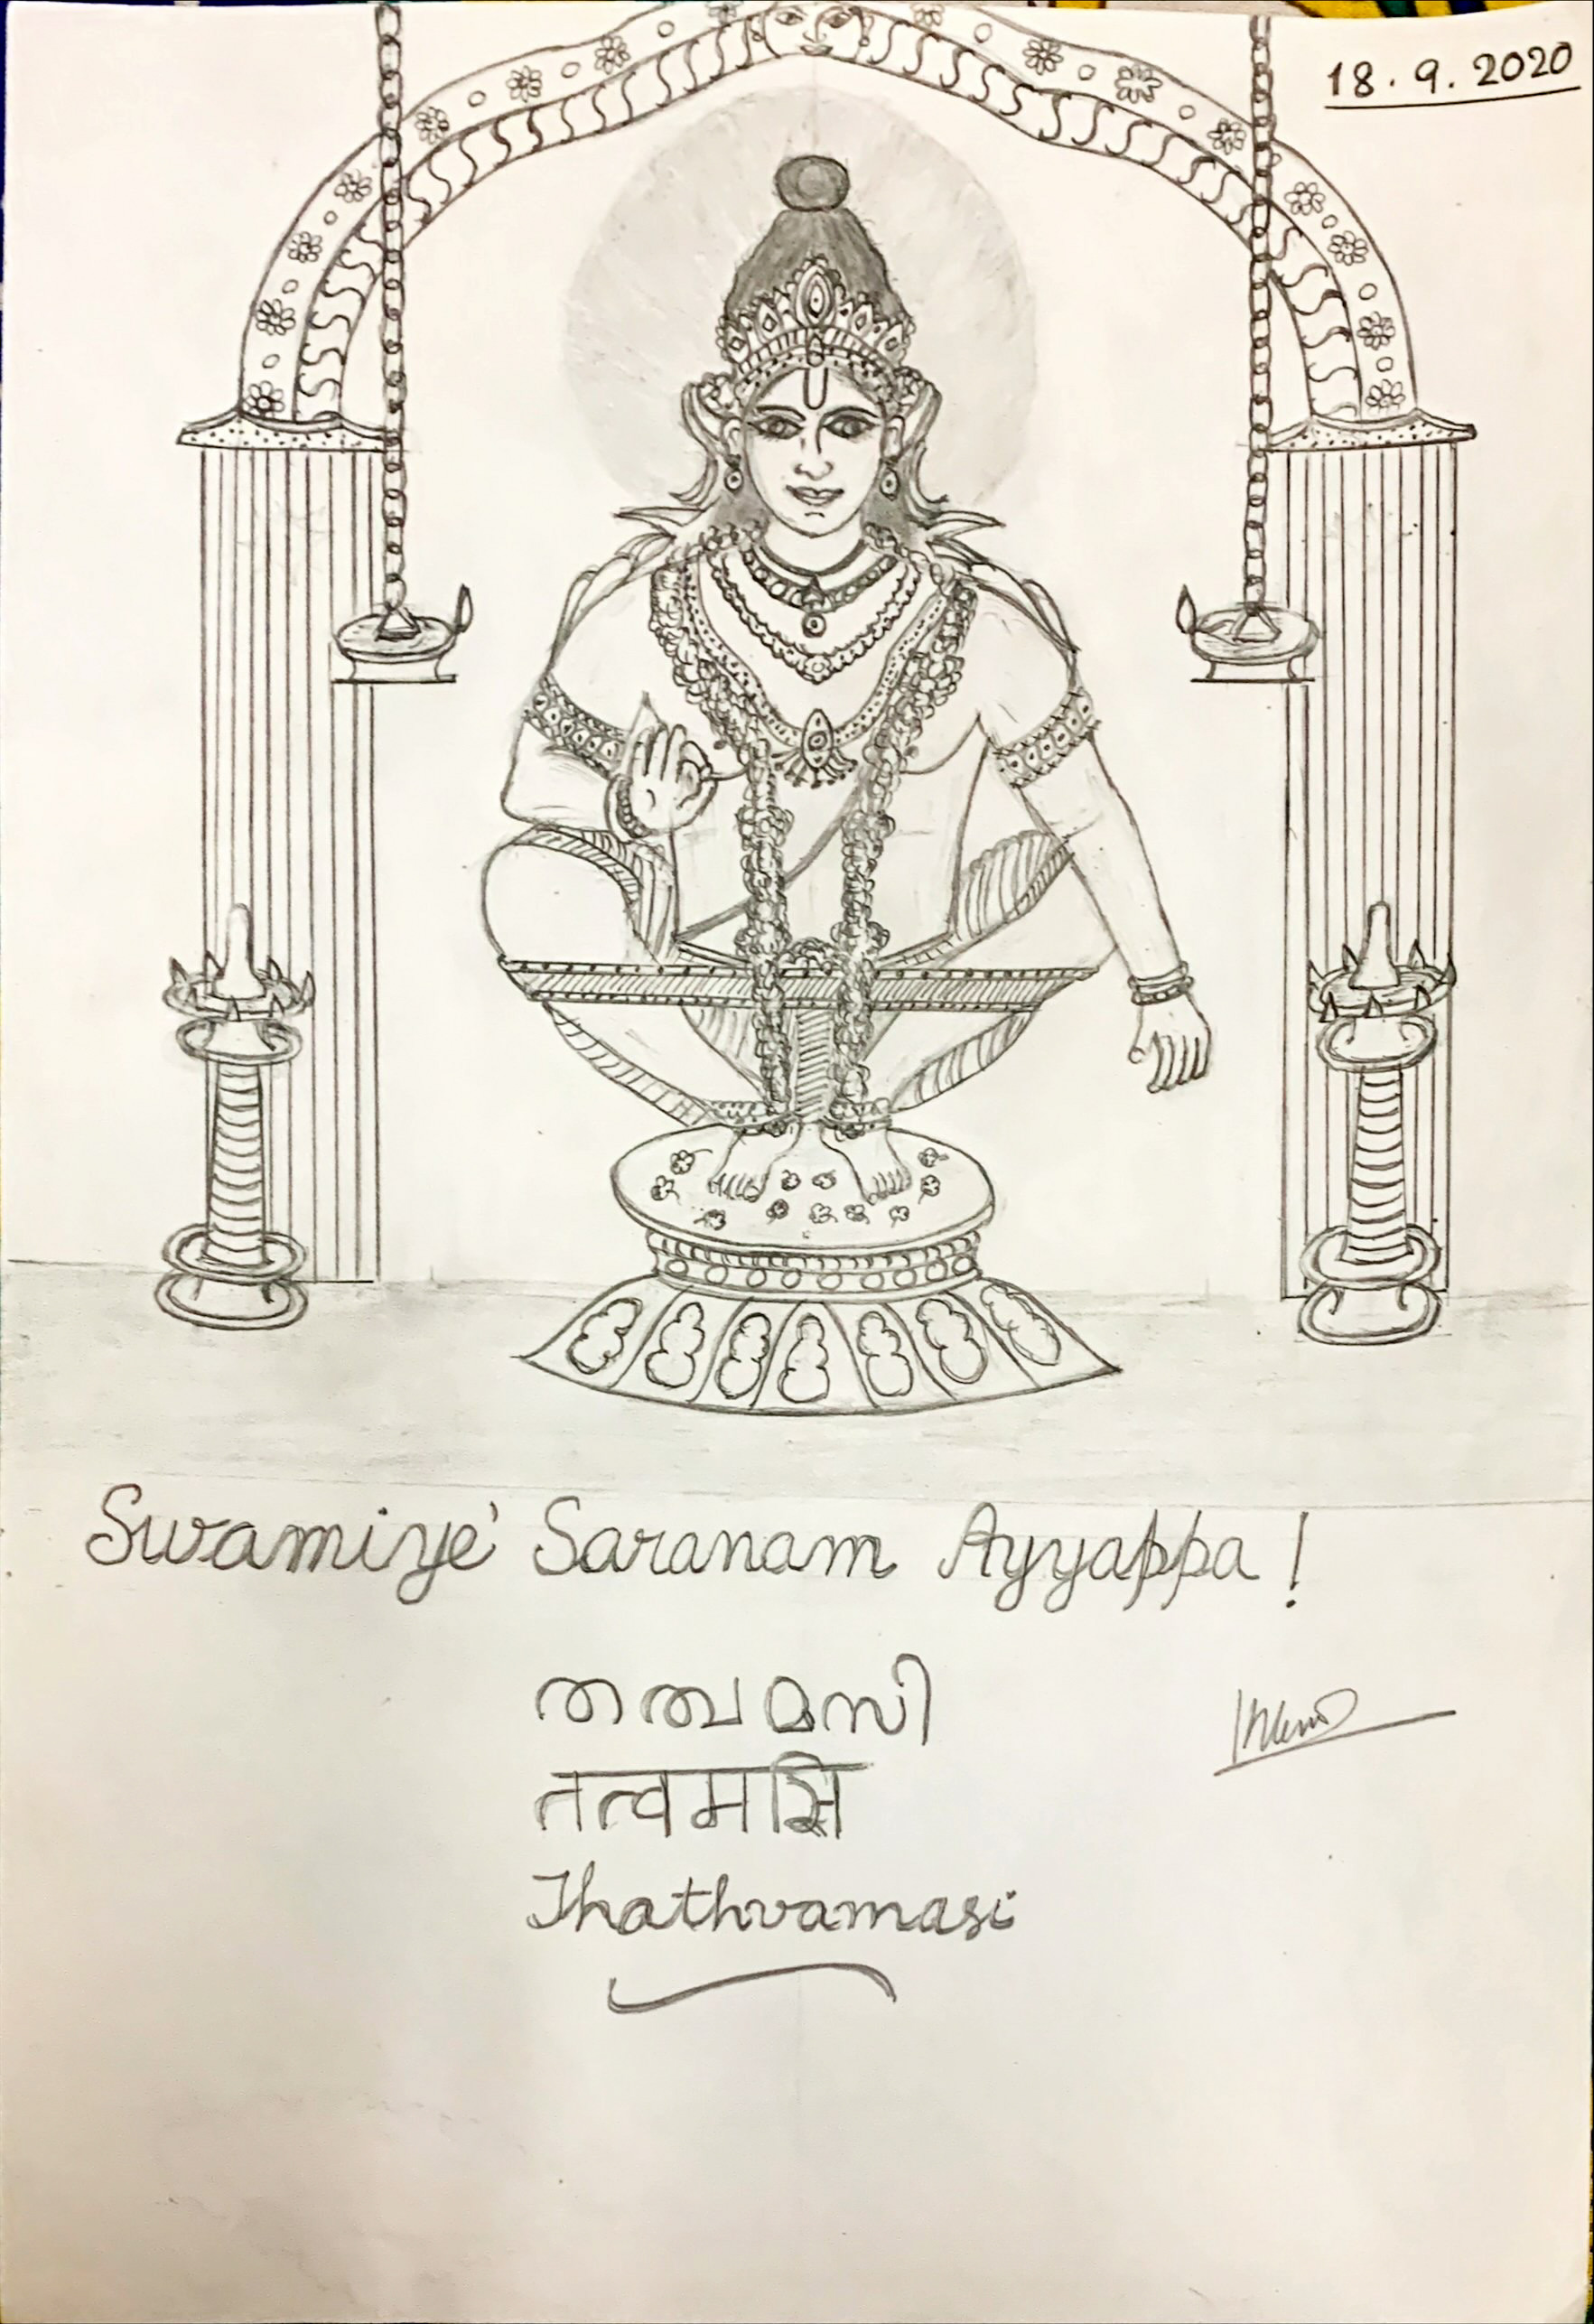 18.9.2020
Swamiye' Saranam Ayyappa!
തത്വമസി
तत्वमसि
Thathvamasi